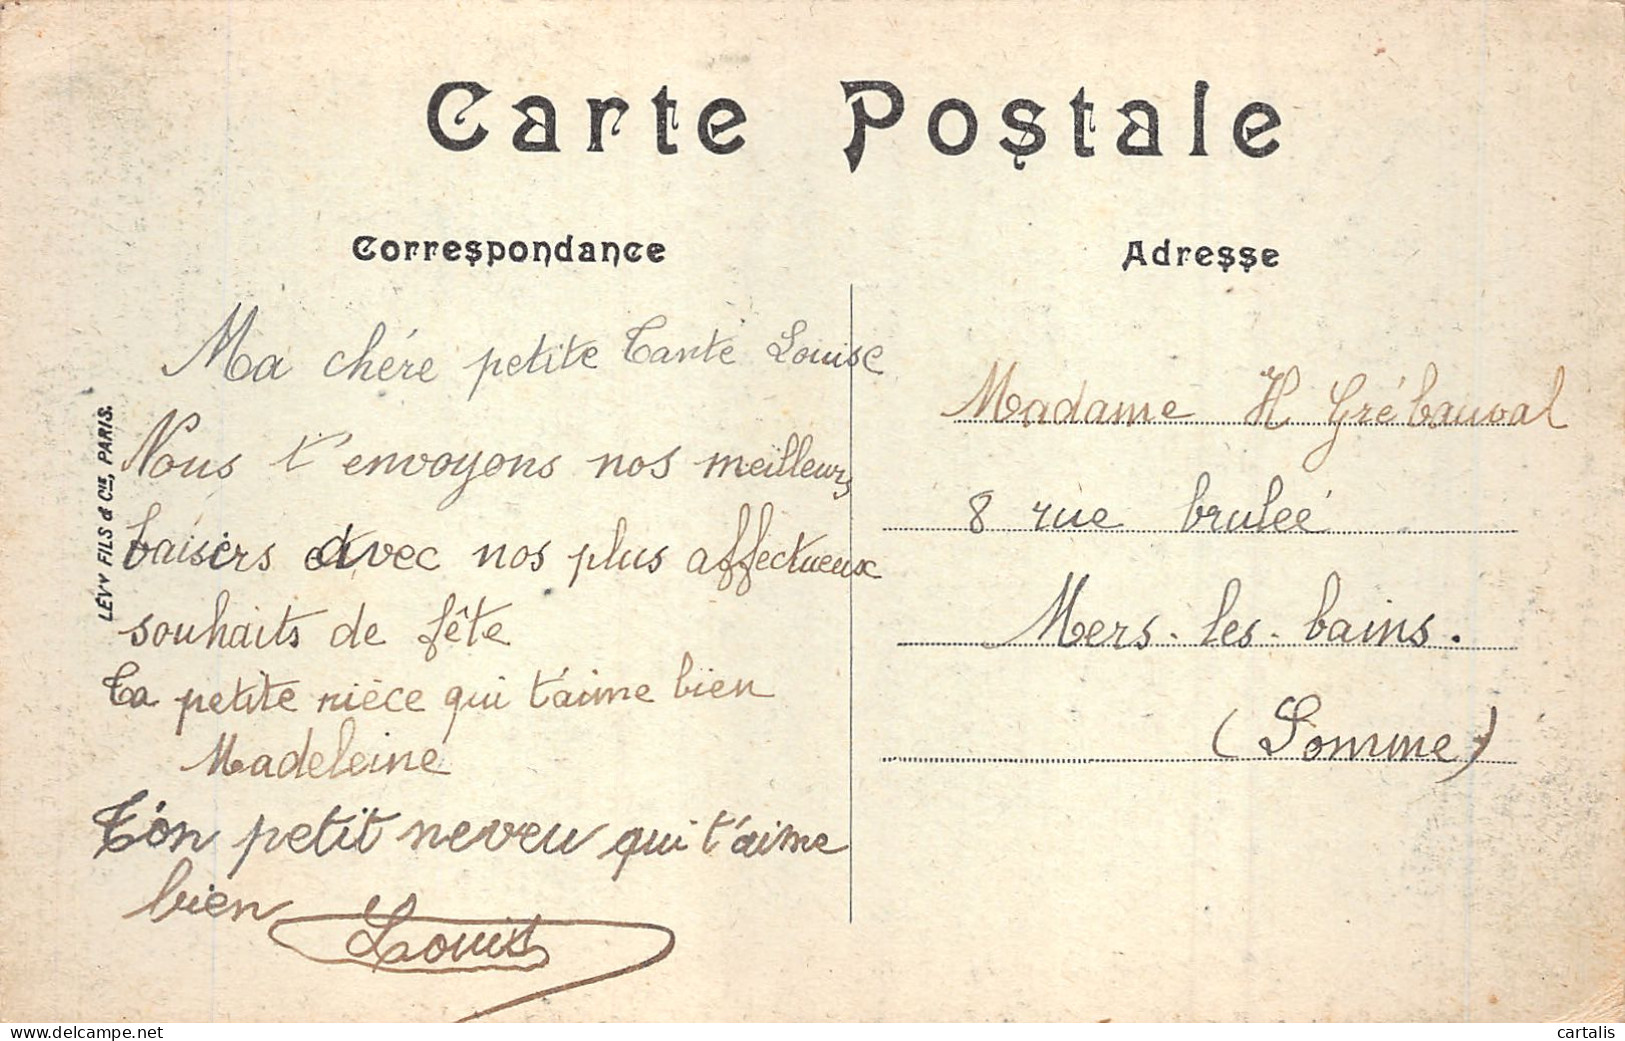 Carte Postale
Correspondance
Ma chére petite Tante Louise
Nous t'envoyons nos meilleurs
baisers avec nos plus affectueux
souhaits de fête
Ta petite nièce qui t'aime bien
Madeleine
Ton petit neveu qui t'aime
bien Louis
LÉVY FILS & CIE, PARIS.
Adresse
Madame H Grébauval
8 rue brulée
Mers-les-bains.
(Somme)
www.delcampe.net
cartalis